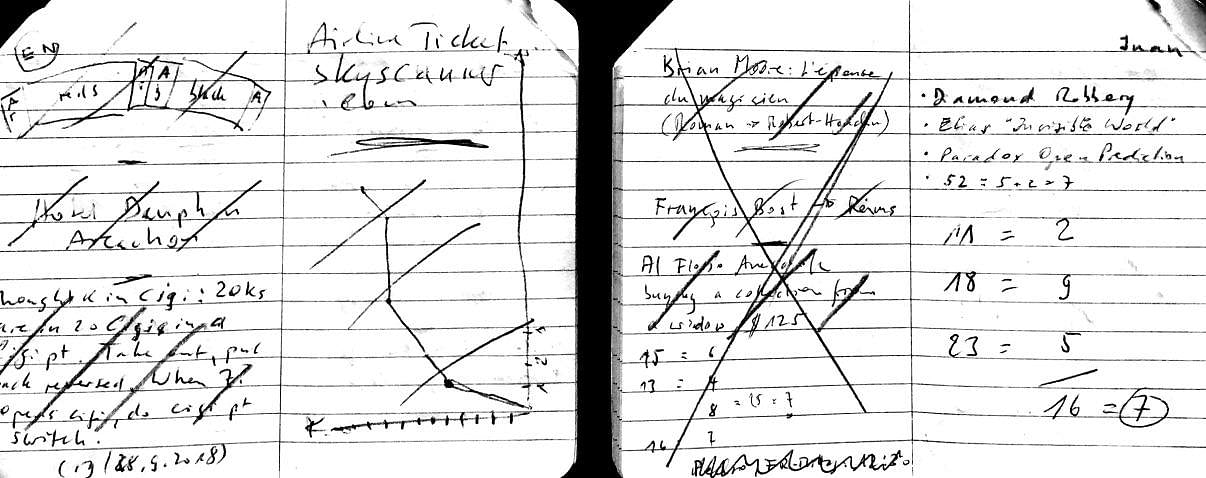 EN
A reds A A black A
Hotel Dauphin
Arcachon
in Cigi: 20ks
in 20 Cigi in a
pt. Take out, put
reversed. When
opens cigi, do cigi pt
switch.
28.9.2018)
Airline Ticket
skyscanner
.com
Brian Moore: L'épouse
du magicien
(Roman → Robert-Houdin)
François Bost → Reims
Al Flosso Anecdote
buying a collection from
a widow $125
15 = 6
13 = 4
8 = 25 = 7
16 7
Juan
• Diamond Robbery
• Elias "Invisible World"
• Paradox Open Prediction
• 52 = 5 + 2 = 7
11 = 2
18 = 9
23 = 5
16 = 7